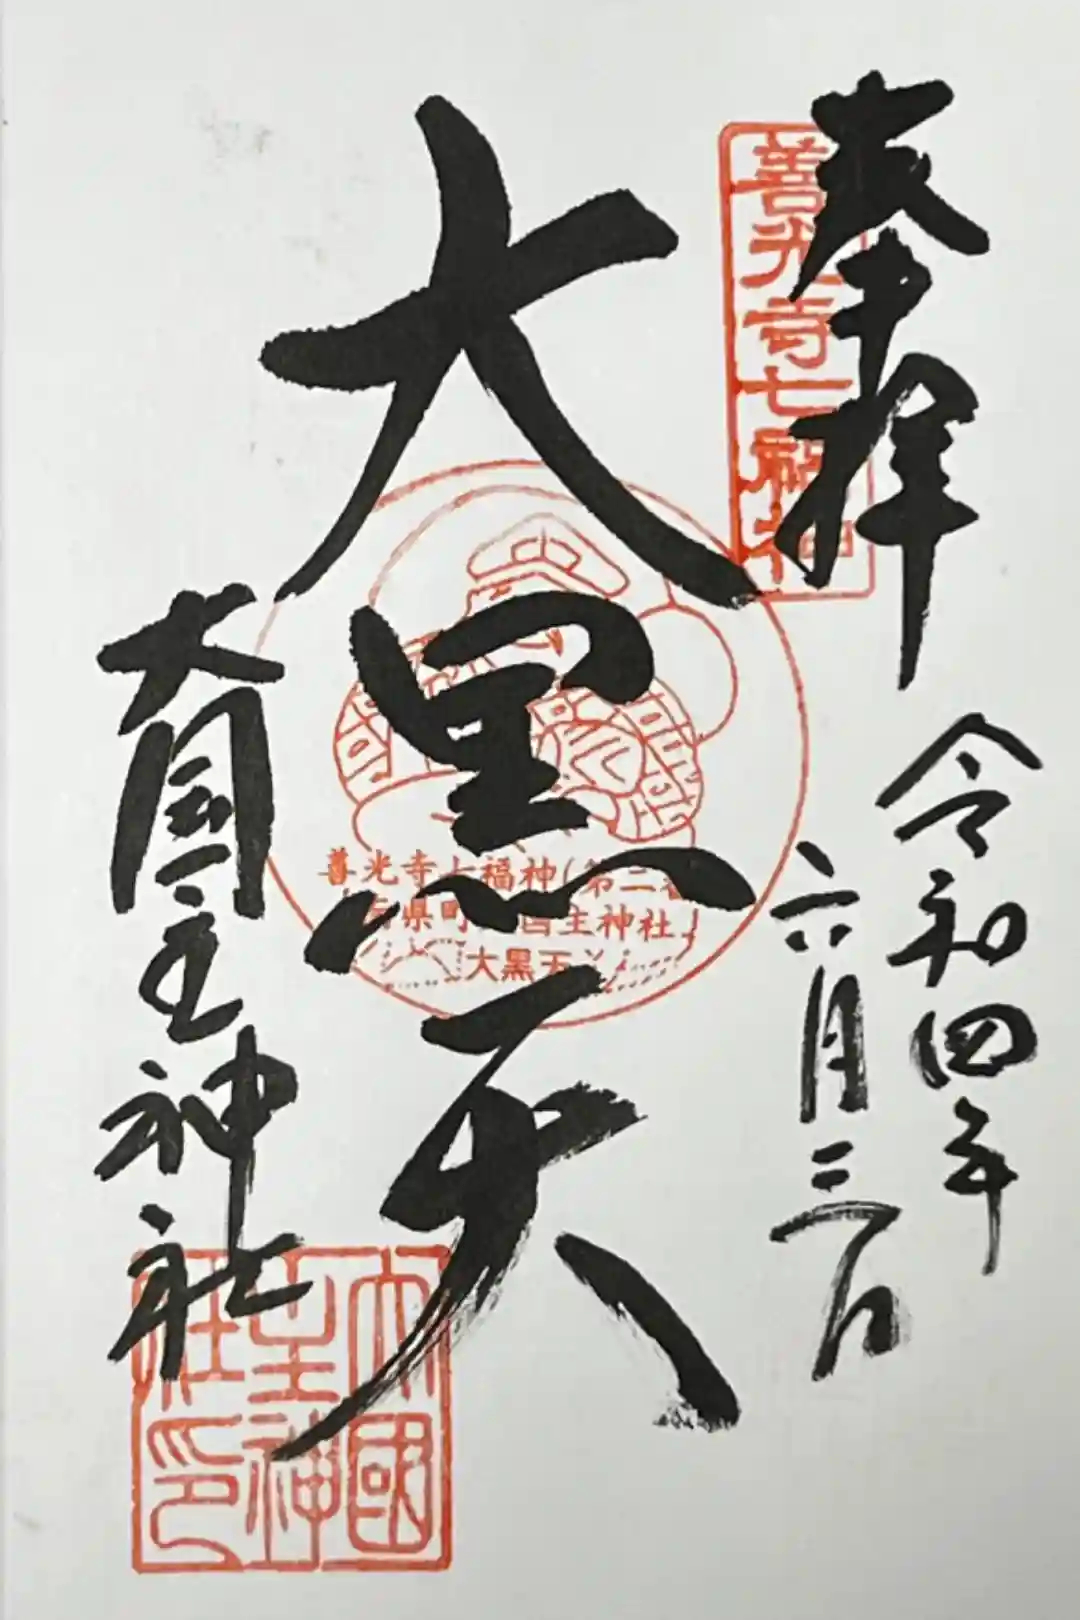 奉拝
善光寺七福神
令和四年
六月三日
大黒天
善光寺七福神(第二番
県町 国主神社」
大黒天
大国主神社
大國主神社印